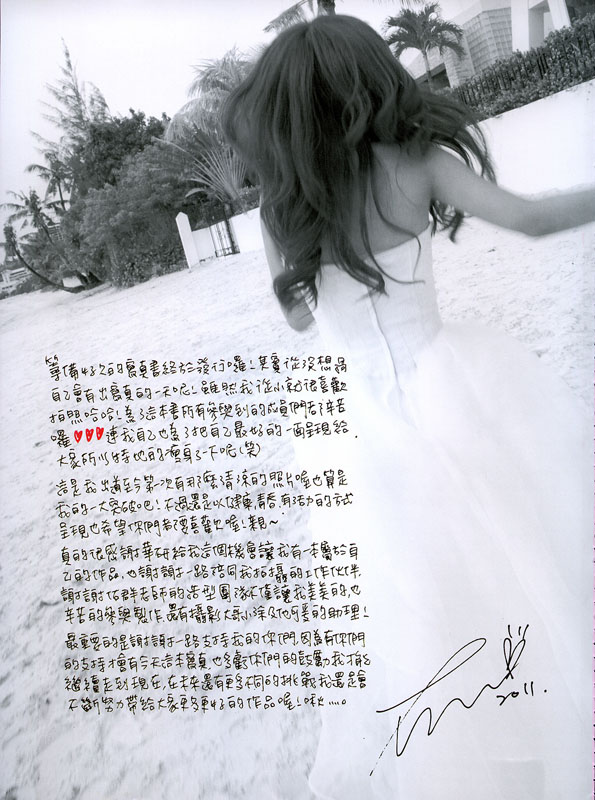 籌備好久的寫真書終於發行囉！其實從沒想過
自己會有出寫真的一天呢！雖然我從小就很喜歡
拍照哈哈！為了這本書所有參與到的成員們都辛苦
囉♥♥♥連我自己也為了把自己最好的一面呈現給
大家所以特地的瘦身了一下呢(笑)
這是我出道至今第一次有那麼清涼的照片喔也算是
我的一大突破吧！不過還是以健康、青春、有活力的方式
呈現也希望你們都要喜歡喔！親~
真的很感謝華研給我這個機會讓我有一本屬於自
己的作品，也謝謝一路陪同我拍攝的工作伙伴，
謝謝佑群老師的造型團隊不僅讓我美美的也
辛苦的參與製作，還有攝影大哥小深及他可愛的助理！
最重要的是謝謝一路支持我的你們，因為有你們
的支持才會有今天這本寫真，也多虧你們的鼓勵我才能
繼續走到現在，在未來還有更多不同的挑戰我還是會
不斷努力帶給大家更多更好的作品喔！啾.....。
2011.